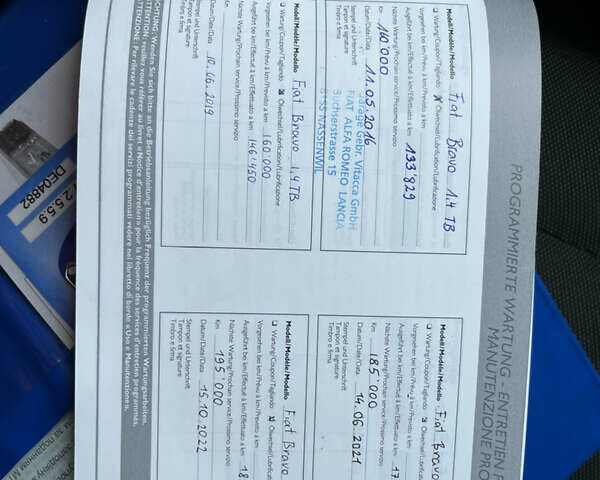 PROGRAMMIERTE WARTUNG - ENTRETIEN
MANUTENZIONE PRO
Modell/Modèle/Modello Fiat Bravo 1.4 TB
Wartung/Coupon/Tagliando Ölwechsel/Lubrification/Lubrificazione
Vorgesehen bei km/Prévu à km/Previsto a km
Ausgeführt bei km/Effectué à km/Effettuato a km 133'829
Nächste Wartung/Prochain service/Prossimo servizio
Km 160'000
Datum/Date/Data 11.05.2016
Stempel und Unterschrift
Tampon et signature
Timbro e firma
Garage Gebr. Vitacca GmbH
FIAT ALFA ROMEO LANCIA
Bucherstrasse 15
8155 NASSENWIL
Modell/Modèle/Modello Fiat Bravo
Wartung/Coupon/Tagliando Ölwechsel/Lubrification/
Vorgesehen bei km/Prévu à km/Previsto a km
Ausgeführt bei km/Effectué à km/Effettuato a km 17
Nächste Wartung/Prochain service/Prossimo servizio
Km 185'000
Datum/Date/Data 14.06.2021
Stempel und Unterschrift
Tampon et signature
Timbro e firma
Modell/Modèle/Modello Fiat Bravo 1,4 TB
Wartung/Coupon/Tagliando Ölwechsel/Lubrification/Lubrificazione
Vorgesehen bei km/Prévu à km/Previsto a km 160'000
Ausgeführt bei km/Effectué à km/Effettuato a km 146'450
Nächste Wartung/Prochain service/Prossimo servizio
Km
Datum/Date/Data 12.06.2019
Stempel und Unterschrift
Tampon et signature
Timbro e firma
Modell/Modèle/Modello Fiat Bravo
Wartung/Coupon/Tagliando Ölwechsel/Lubrification/
Vorgesehen bei km/Prévu à km/Previsto a km
Ausgeführt bei km/Effectué à km/Effettuato a km 18
Nächste Wartung/Prochain service/Prossimo servizio
Km 195'000
Datum/Date/Data 15.10.2022
Stempel und Unterschrift
Tampon et signature
Timbro e firma
ACHTUNG: Wenden Sie sich bitte an die Betriebsanleitung bezüglich Frequenz der programmierten Wartungsarbeiten.
ATTENTION: veuillez vous référer au livret « Notice d'entretien » pour la fréquence des services d'entretien programmés.
ATTENZIONE: Per rilevare le cadenze dei servizi programmati vedere nel libretto di bordo « Uso e Manutenzione ».
2.5.5.9
DE04882